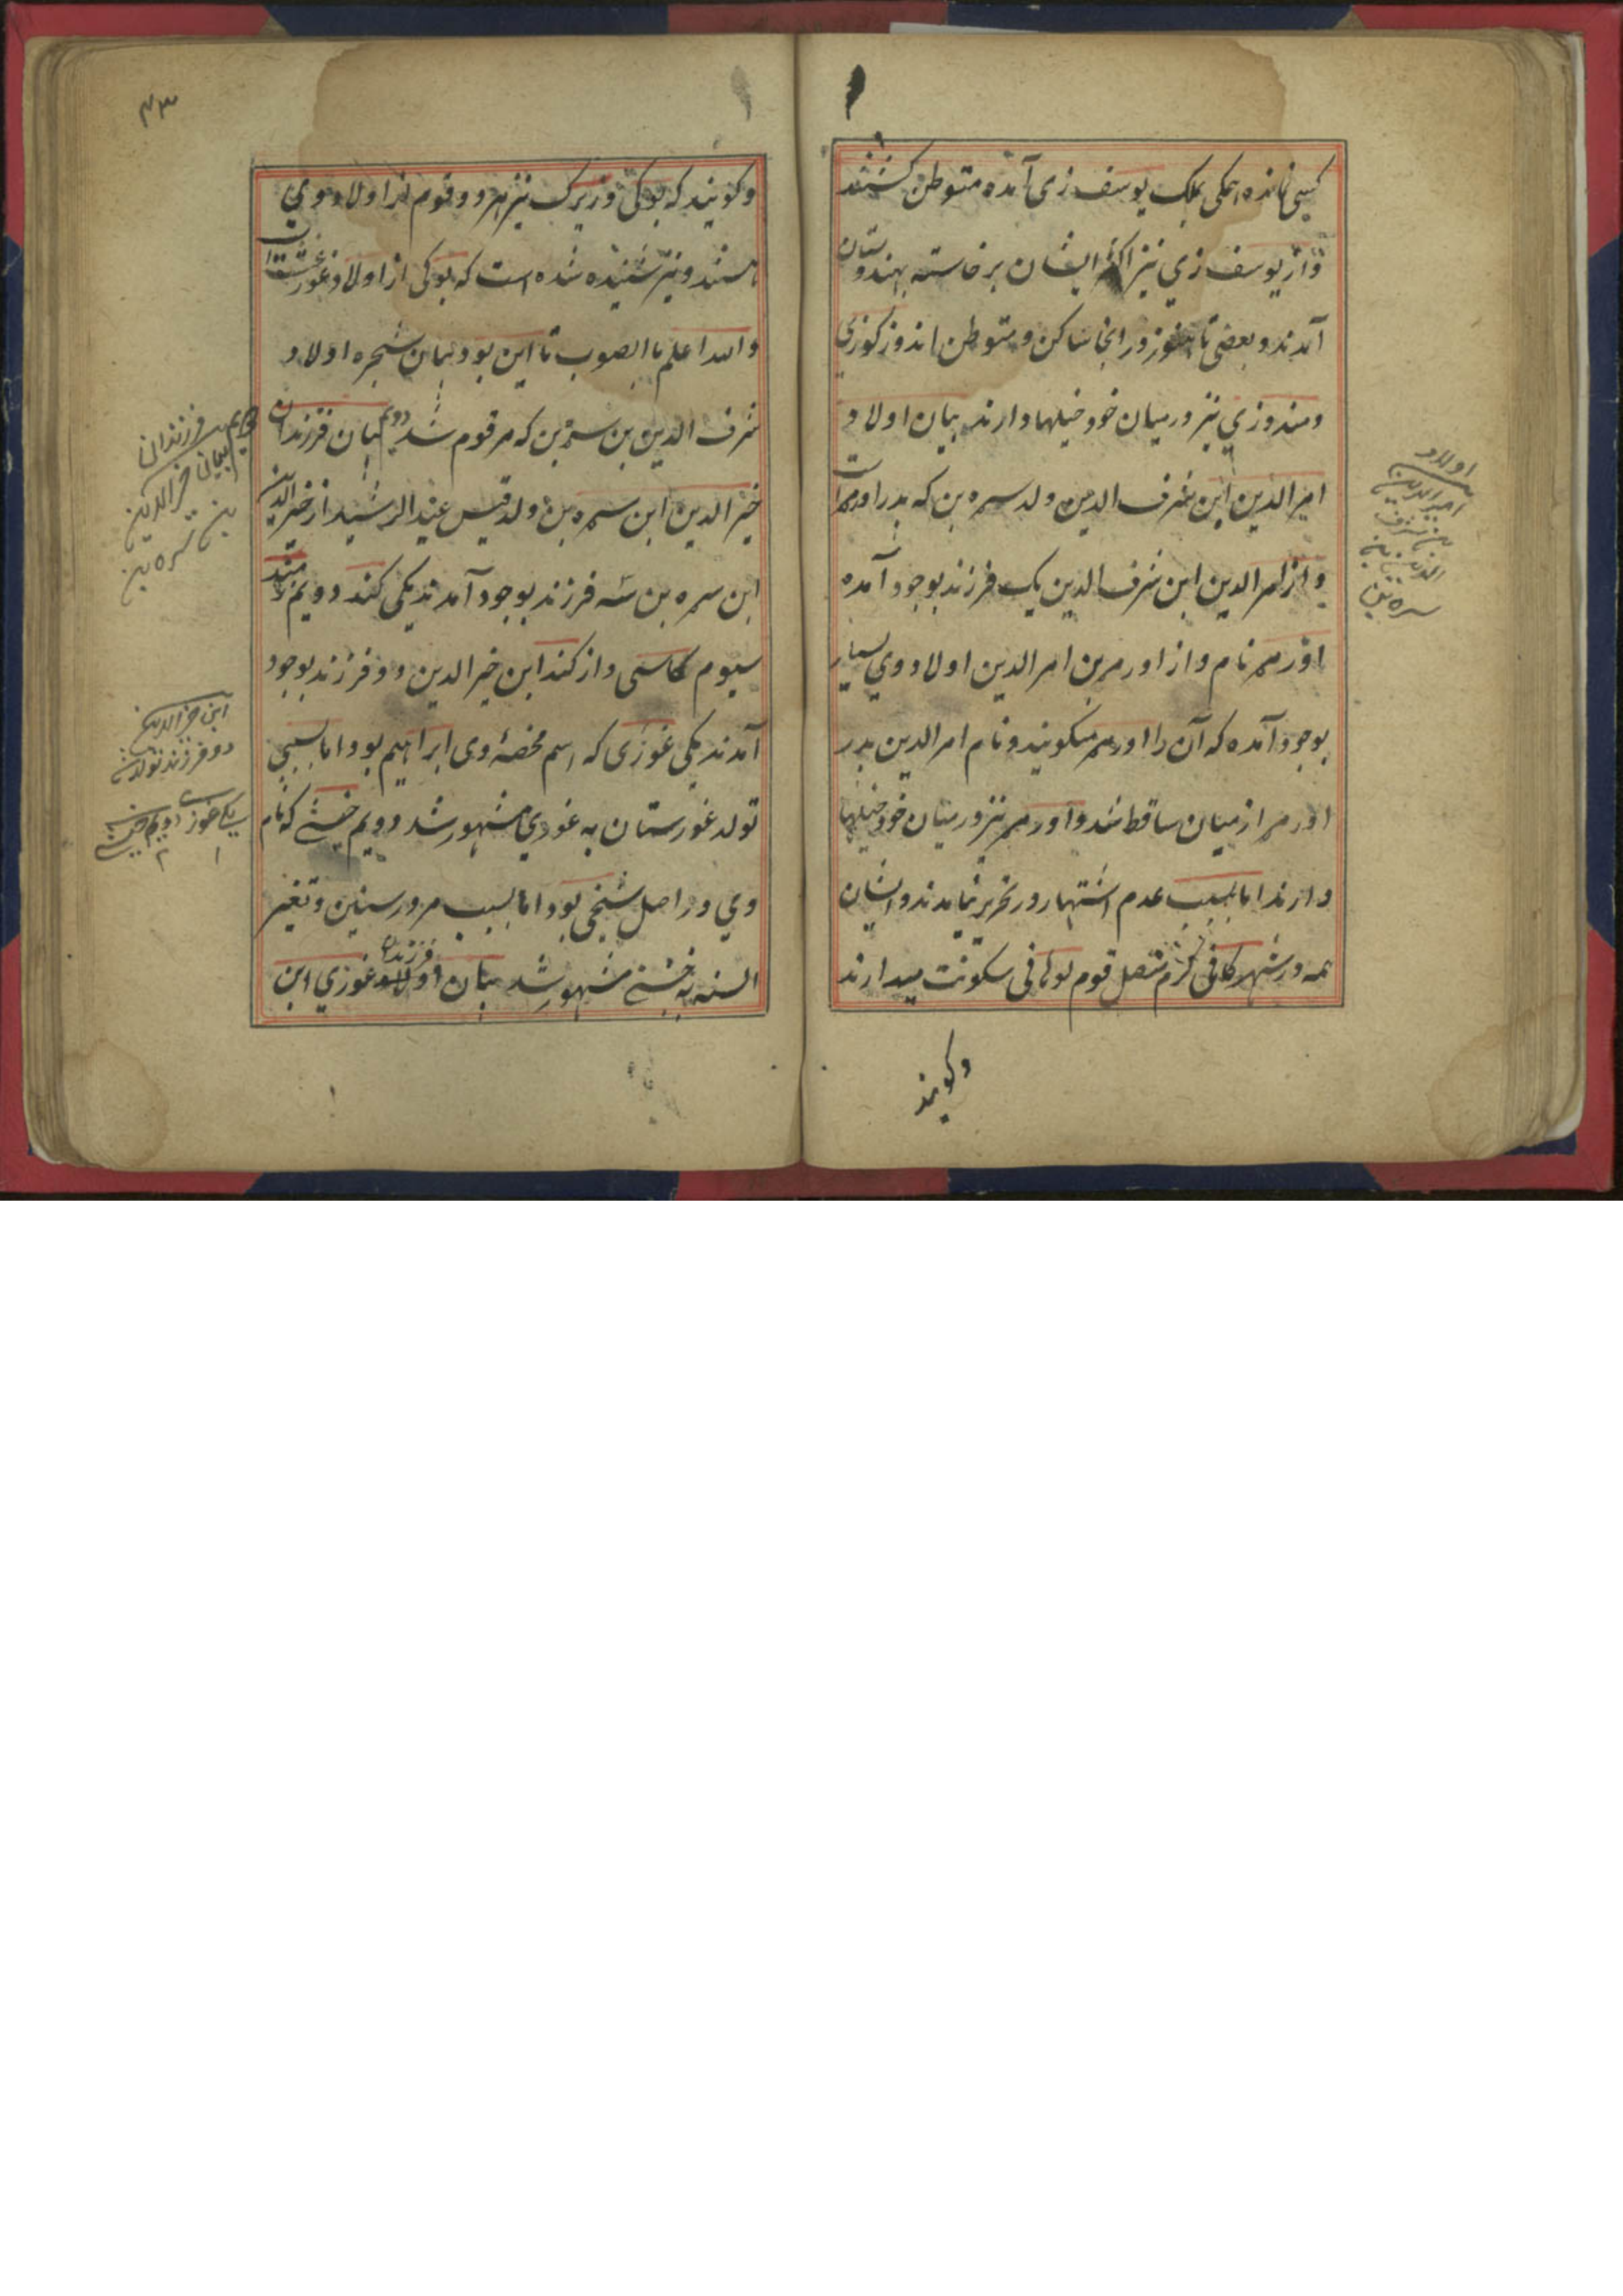 کسی نمانده همکی بملک یوسف زی آمده متوطن کشتند
و از یوسف زي نیز اکثر ایشان برخاسته بهندوستان
آمدند و بعضی تا هنوز در انجا ساکن و متوطن اند و زکوزی
و مندوزي نیز درمیان خود خیلها دارند بیان اولاد
امرالدین ابن شرف الدین ولد سره بن که پدر اورمر است
و از امرالدین ابن شرف الدین یک فرزند بوجود آمده
اورمر نام و از اورمر بن امرالدین اولاد وي بسیار
بوجود آمده که آن را اورمر میکویند و نام امرالدین پدر
اورمر از میان ساقط شد و اورمر نیز درمیان خود خیلها
دارند اما بسبب عدم اشتهار در تحریر نیامدند و ایشان
همه در شهر کانی کرم متصل قوم لوهانی سکونت میدارند
وکویند
اولاد
امیرالدین
بن شرف
الدین بن
سره بن
۴۳
وکویند که بوکی و زیرک نیز هر دو قوم از اولاد وي
هستند و نیز شنیده شده است که بوکی از اولاد غورغشت است
والله اعلم باالصوب تا این بود بیان شجره اولاد
شرف الدین بن سره بن که مرقوم شد دویم بیان فرزندان
خیرالدین ابن سره بن ولد قیس عبدالرشید از خیرالدین
ابن سره بن سه فرزند بوجود آمدند یکی کند دویم زمند
سیوم کاسی و از کند ابن خیرالدین دو فرزند بوجود
آمدند یکی غوزی که اسم مخصهٔ وی ابراهیم بود اما بسببی
تولد غورستان به غوري مشهور شد دویم خشے که نام
وي در اصل شیخی بود اما بسبب مرور سنین و تغیر
السنه به خشے مشهور شد بیان فرزندان غوزي ابن
دویم فرزندان
بیان خیرالدین
بن سره بن
ابن خیرالدین
دو فرزند تولد شد
یکی غوزی دویم خشے
۱ ۲